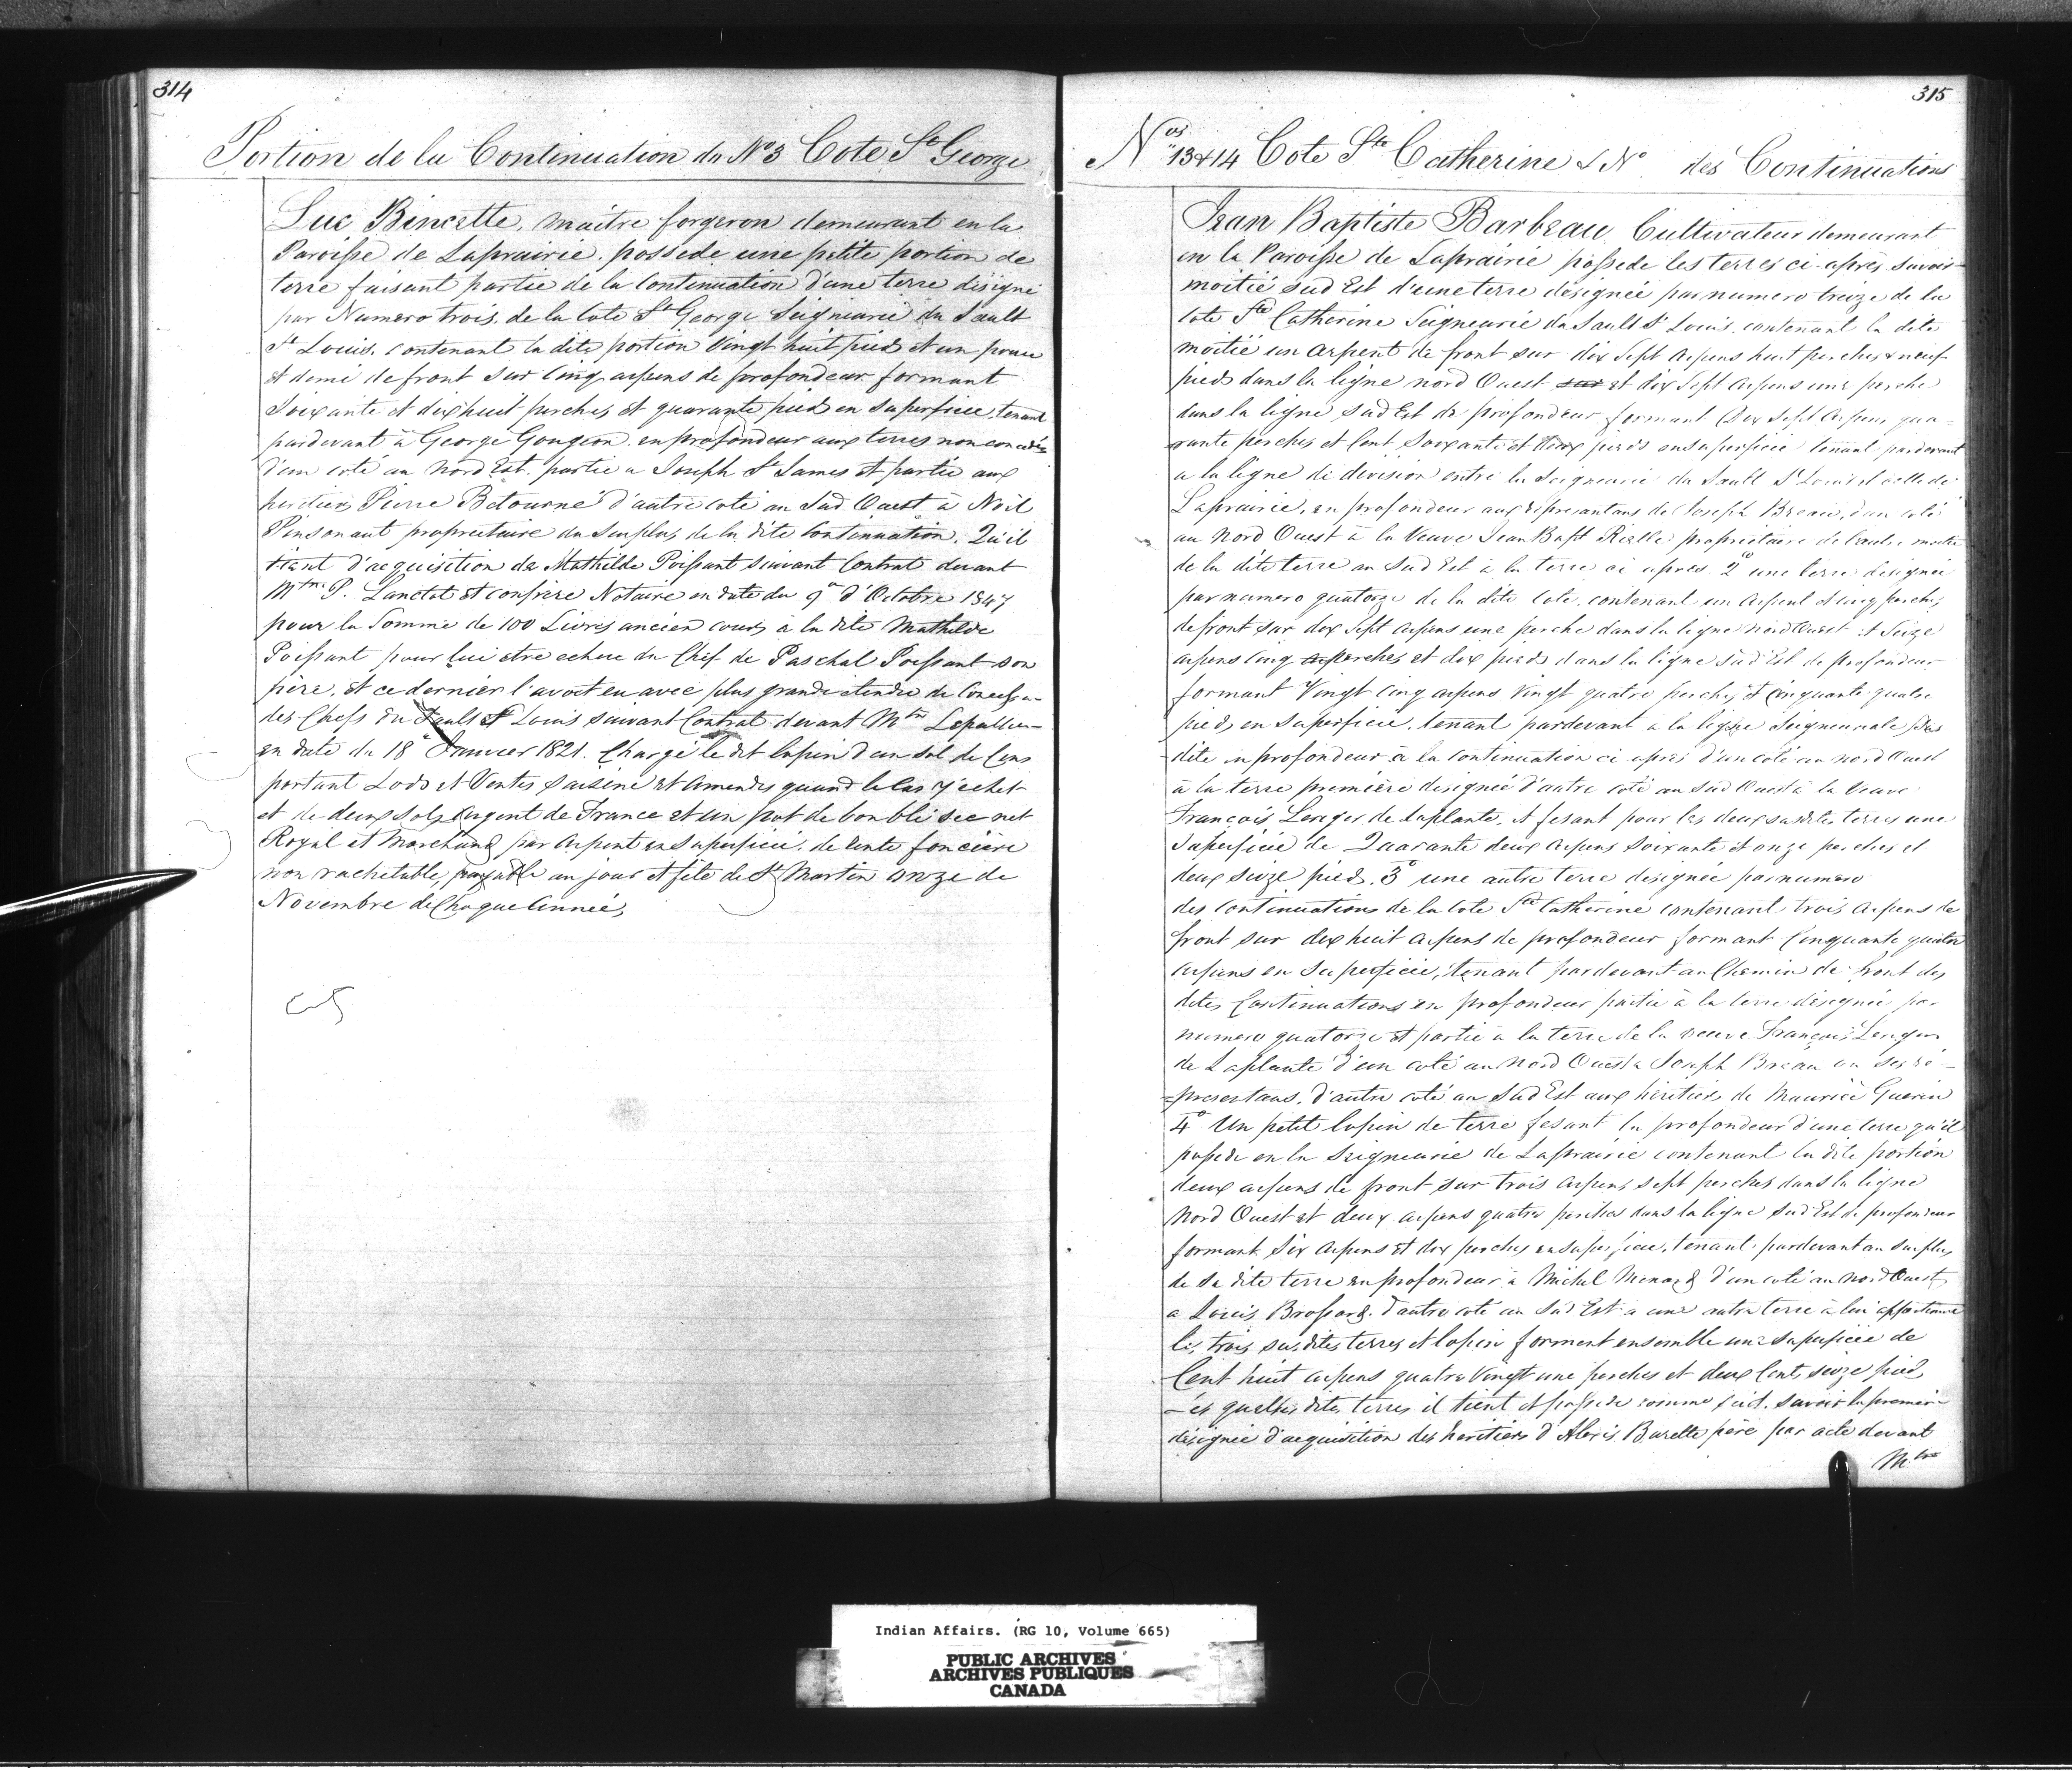 314
Portion de la Continuation du N°3 Cote St George
Luc Bincette, maitre forgeron demeurant en la
Paroisse de Laprairie, possede une petite portion de
terre faisant partie de la Continuation d'une terre désigné
par Numero trois, de la Cote St George Seigneurie du Sault
St Louis, contenant la dite portion Vingt huit pieds et un pouce
et demi de front sur Cinq arpens de profondeur formant
Soixante et dix huit perches et quarante pieds en superficie, tenant
pardevant à George Gougeon, en profondeur aux terres non concedés
d'un coté au Nord Est, partie a Joseph St James et partie aux
heritiers Pierre Betourné d'autre coté au Sud Ouest à Noël
Pinsonaut proprietaire du Surplus de la dite Continuation. Qu'il
tient d'acquisition de Mathilde Poissant suivant Contrat devant
Mtre P. Lanctot et confrère Notaire en date du 9e d'Octobre 1847
pour la Somme de 100 Livres ancien cours, à la dite Mathilde
Poissant pour lui etre echue du Chef de Paschal Poissant son
père, et ce dernier l'avoit eu avec plus grande etendue de Concession
des Chefs du Sault St Louis suivant Contrat devant Mtre Lepallieur
en date du 18e Janvier 1821. Chargé le dit lopin d'un sol de Cens
portant Lods et Ventes saisine et amendes quand le cas y échet
et de deux sols, argent de France et un pot de bon blé sec net
Royal et Marchand par arpent en superficie, de rente foncière
non rachetable, payable au jour et fête de St Martin onze de
Novembre de Chaque Année,
315
Nos 13 & 14 Cote Ste Catherine & N° des Continuations
Jean Baptiste Barbeau, Cultivateur demeurant
en la Paroisse de Laprairie possede les terres ci-après savoir
moitié sud Est d'une terre désignée par numero treize de la
Cote Ste Catherine Seigneurie du Sault St Louis, contenant la dite
moitié un arpent de front sur dix Sept arpens huit perches & neuf
pieds dans la ligne nord Ouest sur et dix Sept arpens une perche
dans la ligne sud Est de profondeur formant Dix Sept arpens qua-
rante perches et Cent Soixante et deux pieds en superficie tenant pardevant
a la ligne de division entre la Seigneurie du Sault St Louis et celle de
Laprairie, en profondeur aux représentans de Joseph Breau, d'un coté
au Nord Ouest à la Veuve Jean Bapt Rielle propriétaire de l'autre moitié
de la dite terre au Sud Est à la terre ci après. 2° une terre désignée
par numero quatorze de la dite Cote, contenant un arpent & cinq perches
de front sur dix Sept arpens une perche dans la ligne Nord Ouest et Seize
arpens cinq perches et dix pieds dans la ligne sud Est de profondeur
formant Vingt Cinq arpens Vingt quatre perches et cinquante quatre
pieds en superficie, tenant pardevant a la ligne Seigneuriale sus
dite en profondeur à la continuation ci après d'un coté au nord Ouest
à la terre première désignée d'autre coté au Sud Ouest à la Veuve
François Lenger de Laplante, et fesant pour les deux susdites terres une
Superficie de Quarante deux arpens Soixante et onze perches et
deux seize pieds. 3° une autre terre désignée par numero
des Continuations de la Cote Ste Catherine contenant trois arpens de
front sur dix huit arpens de profondeur formant Cinquante quatre
arpens en superficie, tenant pardevant au Chemin de front des
dites Continuations en profondeur partie à la terre désignée par
numero quatorze et partie à la terre de la veuve François Lenger
de Laplante d'un coté au Nord Ouest a Joseph Breau ou ses ré-
=presentans, d'autre coté au Sud Est aux héritiers de Maurice Guerin
4° Un petit lopin de terre fesant la profondeur d'une terre qu'il
possede en la Seigneurie de Laprairie contenant la dite portion
deux arpens de front sur trois arpens sept perches dans la ligne
Nord Ouest et deux arpens quatre perches dans la ligne Sud Est de profondeur
formant Six arpens et dix perches en superficie, tenant pardevant au Surplus
de sa dite terre en profondeur à Michel Menard d'un coté au Nord Ouest
a Louis Brossard d'autre coté au Sud Est a une autre terre à lui appartenant
les trois susdites terres et lopin forment ensemble une superficie de
Cent huit arpens quatre Vingt une perches et deux Cents seize pieds,
les quelles dites terres il tient et possede comme suit, savoir la première
désignée d'acquisition des héritiers d'Alexis Barette père par acte devant
Mtre
Indian Affairs. (RG 10, Volume 665)
PUBLIC ARCHIVES
ARCHIVES PUBLIQUES
CANADA